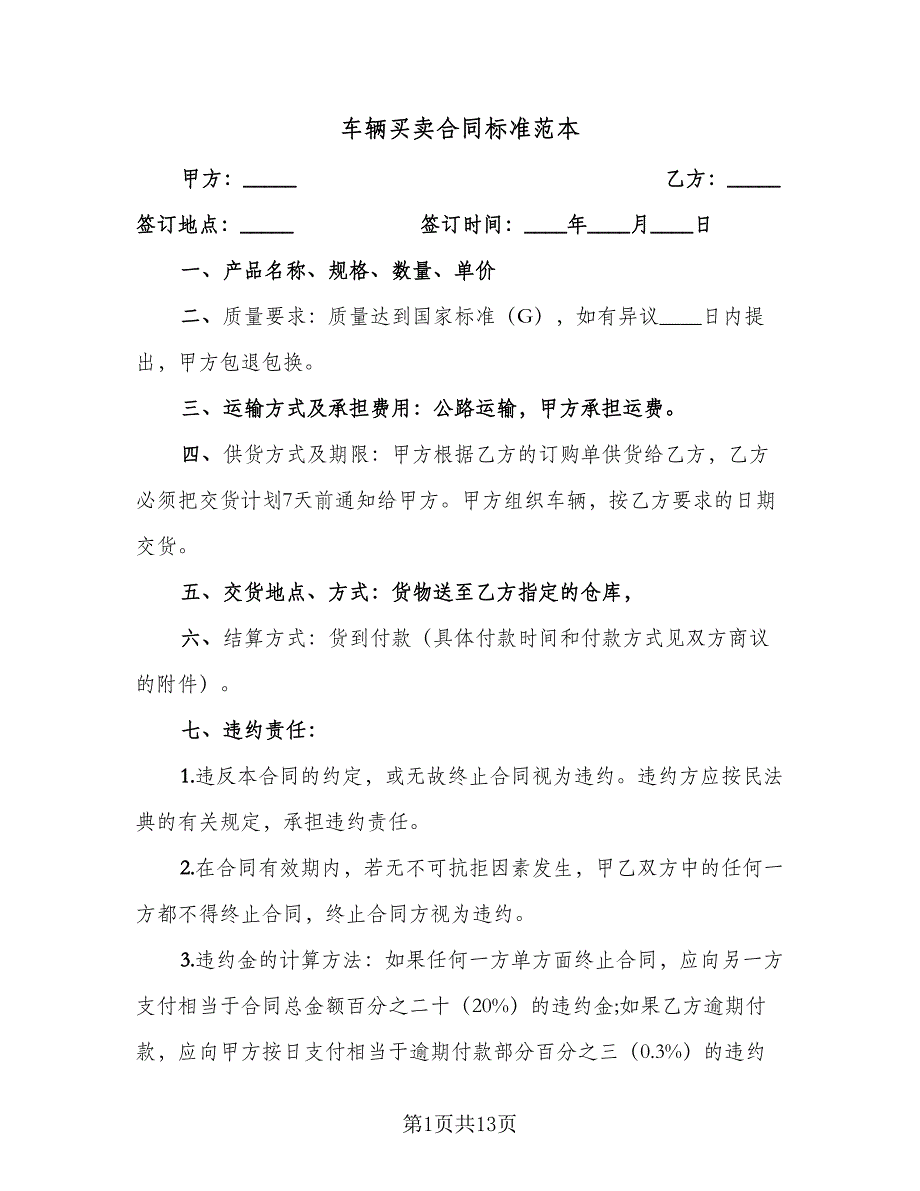 车辆买卖合同标准范本
甲方：_____ 乙方：_____
签订地点：_____ 签订时间：____年____月____日
一、产品名称、规格、数量、单价
二、质量要求：质量达到国家标准（G），如有异议____日内提
出，甲方包退包换。
三、运输方式及承担费用：公路运输，甲方承担运费。
四、供货方式及期限：甲方根据乙方的订购单供货给乙方，乙方
必须把交货计划7天前通知给甲方。甲方组织车辆，按乙方要求的日期
交货。
五、交货地点、方式：货物送至乙方指定的仓库，
六、结算方式：货到付款（具体付款时间和付款方式见双方商议
的附件）。
七、违约责任：
1.违反本合同的约定，或无故终止合同视为违约。违约方应按民法
典的有关规定，承担违约责任。
2.在合同有效期内，若无不可抗拒因素发生，甲乙双方中的任何一
方都不得终止合同，终止合同方视为违约。
3.违约金的计算方法：如果任何一方单方面终止合同，应向另一方
支付相当于合同总金额百分之二十（20%）的违约金;如果乙方逾期付
款，应向甲方按日支付相当于逾期付款部分百分之三（0.3%）的违约
第1页共13页